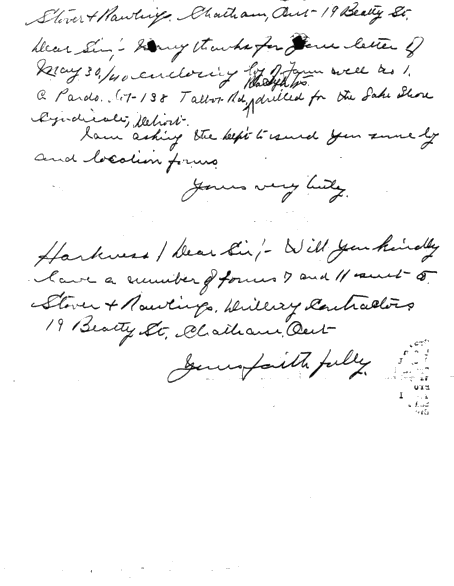 Stover + Rawlings, Chatham, Ont - 19 Beatty St.
Dear Sir;- Many thanks for your letter of
May 30/40 enclosing log of Farm well no 1,
Raleigh
C Pardo. 137-138 Talbot Rd, drilled for the Lake Shore
Syndicate, Detroit.
I am asking the Dept to send you some log
and location forms
Yours very truly.
Harkness / Dear Sir;- Will you kindly
have a number of forms 7 and 11 sent to
Stover + Rawlings, Drilling Contractors
19 Beatty St. Chatham, Ont
Yours faithfully.